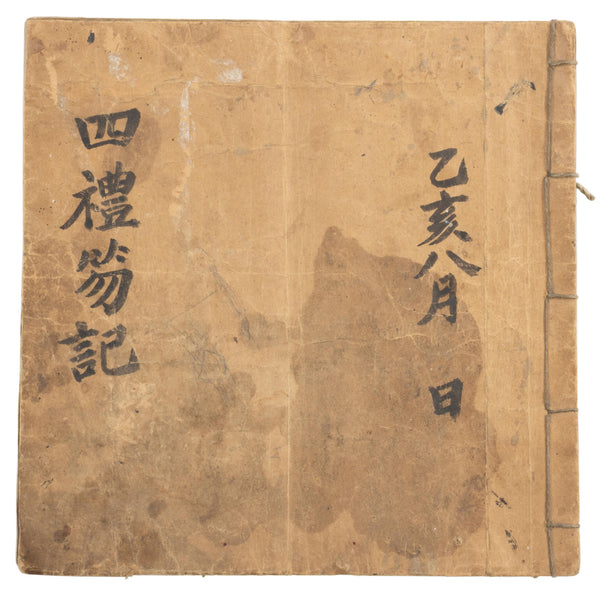 乙亥八月　日
四禮笏記